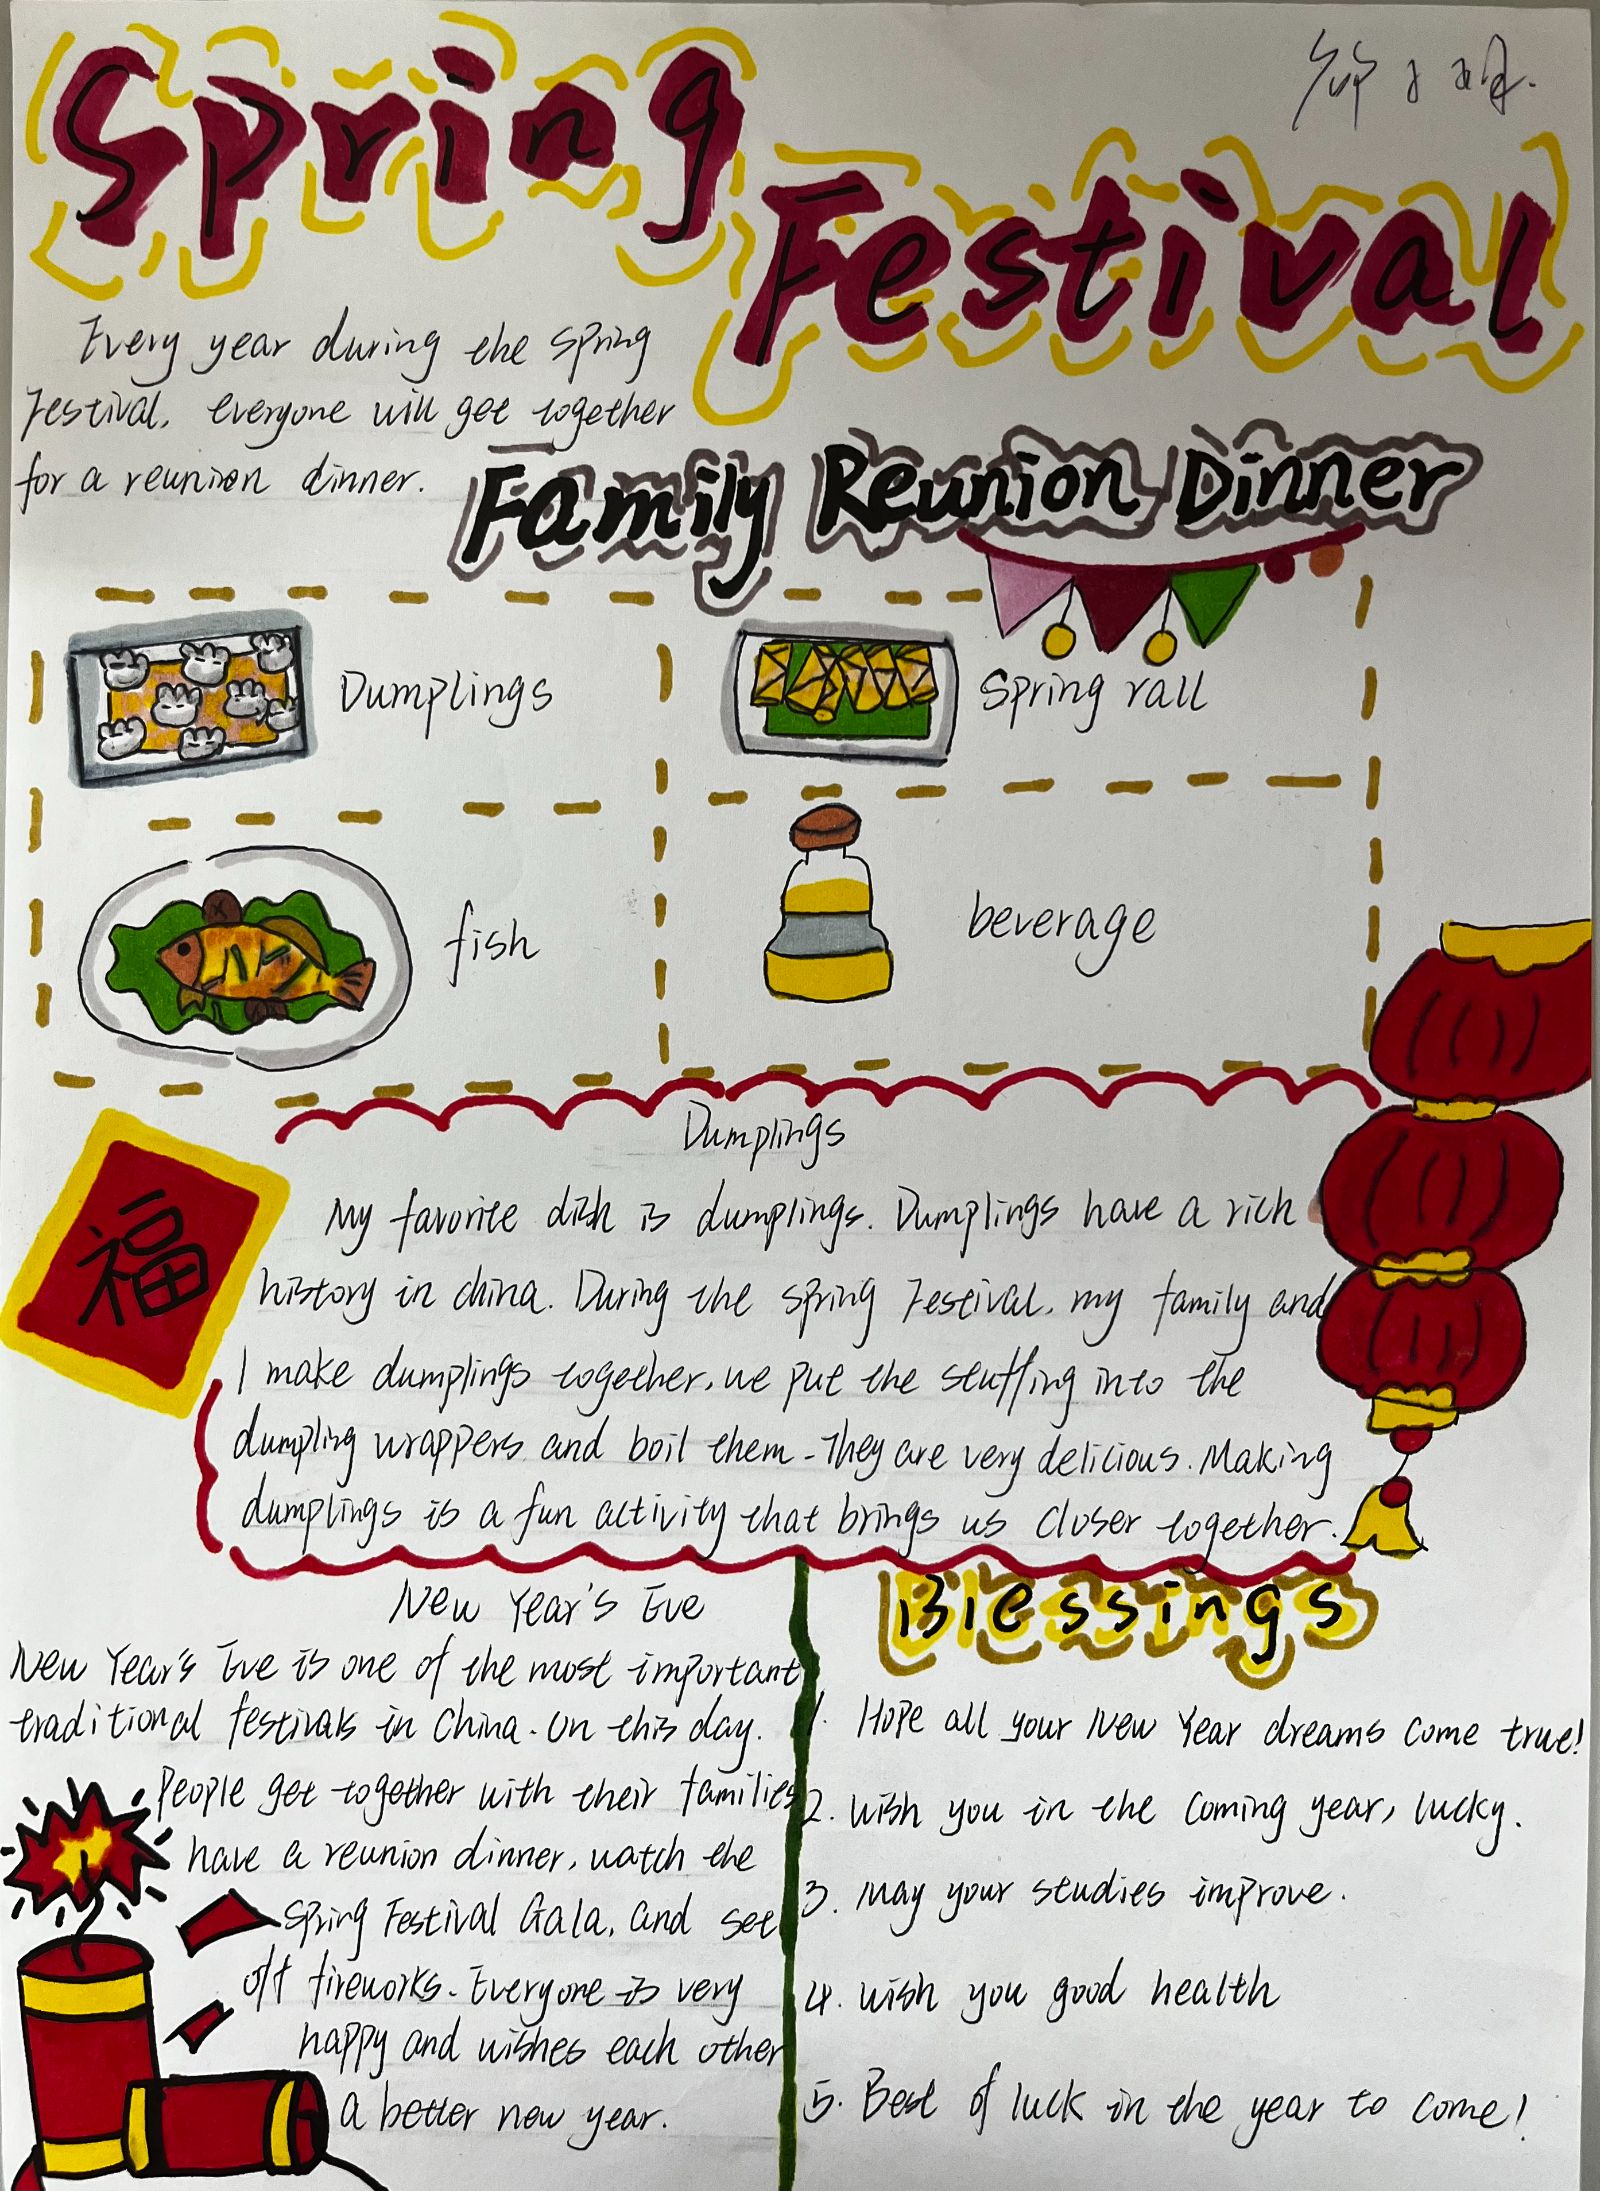 Spring
Festival
Every year during the Spring
Festival, everyone will get together
for a reunion dinner.
Family Reunion Dinner
Dumplings
Spring rall
fish
beverage
福
Dumplings
My favorite dish is dumplings. Dumplings have a rich
history in china. During the Spring Festival, my family and
I make dumplings together, we put the stuffing into the
dumpling wrappers and boil them. They are very delicious. Making
dumplings is a fun activity that brings us closer together.
New Year's Eve
New Year's Eve is one of the most important
traditional festivals in China. On this day.
People get together with their families
have a reunion dinner, watch the
Spring Festival Gala, and set
off fireworks. Everyone is very
happy and wishes each other
a better new year.
Blessings
1. Hope all your New Year dreams come true!
2. Wish you in the coming year, lucky.
3. May your studies improve.
4. Wish you good health
5. Best of luck in the year to come!